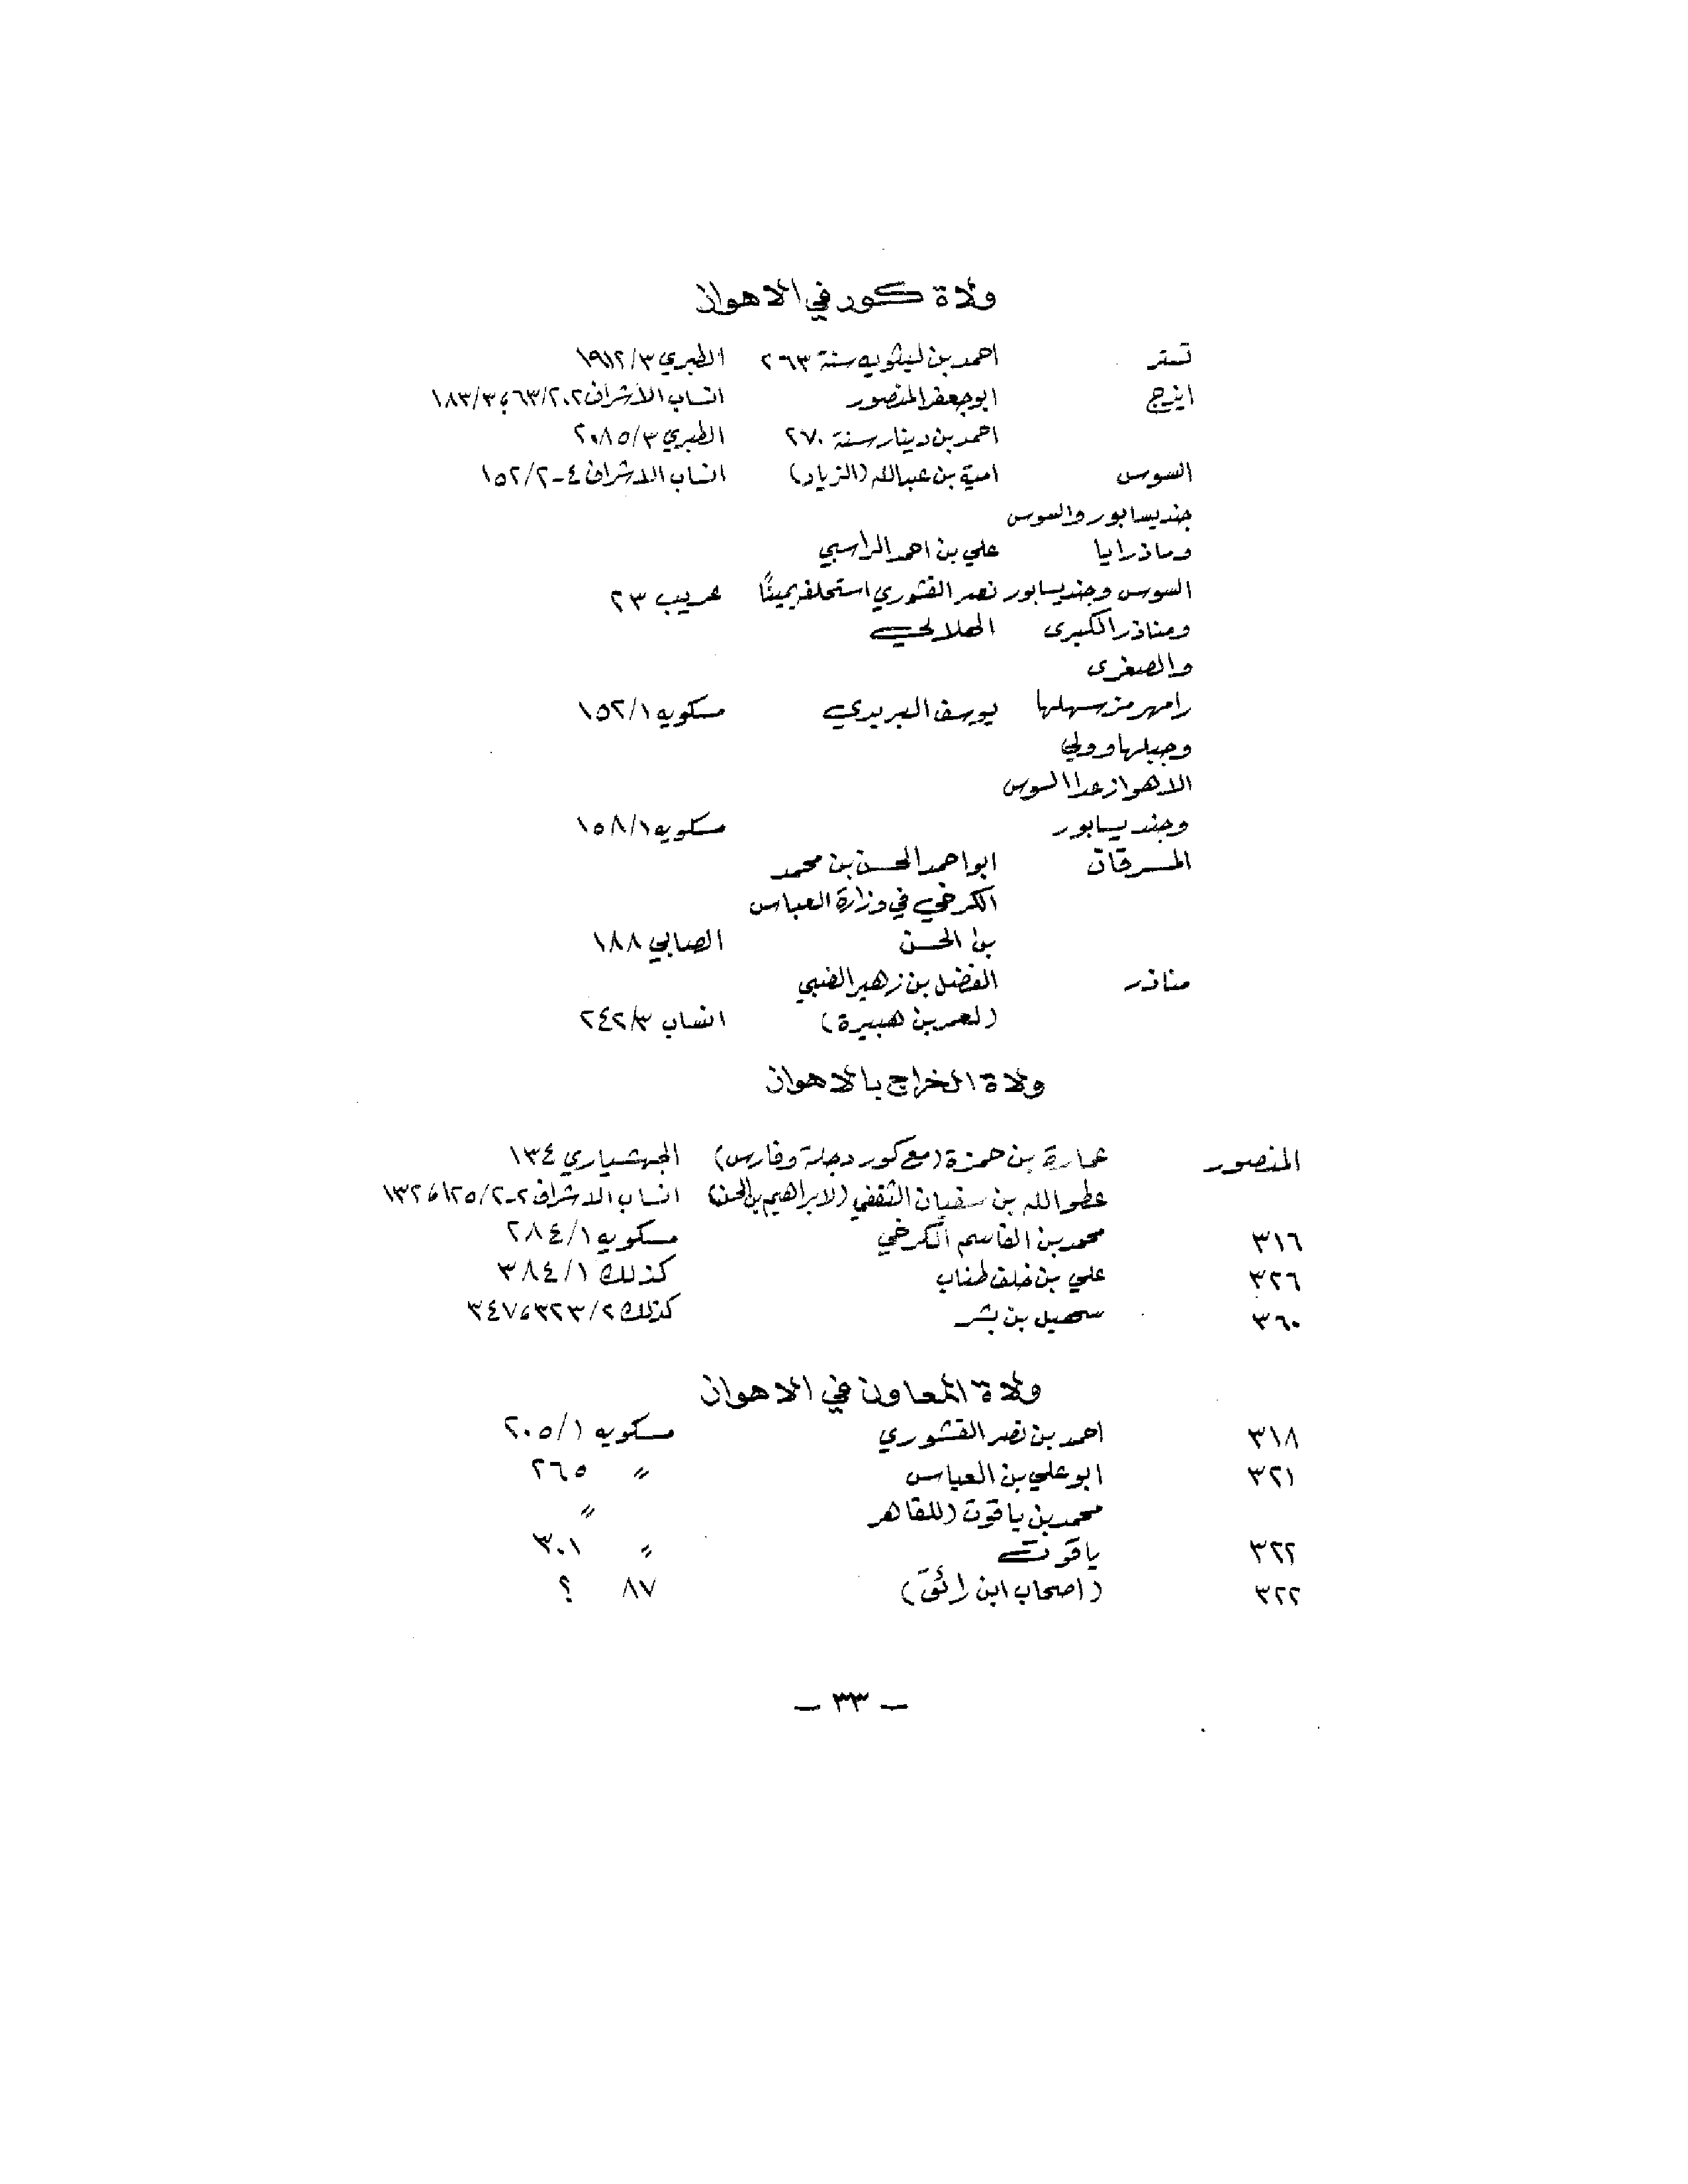 ولاة كور في الاهواز
تستر احمد بن ليثويه سنة ٢٦٣ الطبري ٣/١٩١٢
ايذج ابو جعفر المنصور انساب الأشراف ٢-٦٣/٢؛ ١٨٣/٣
احمد بن دينار سنة ٢٧٠ الطبري ٣/٢٠٨٥
السوس امية بن عبدالله (الزياد) انساب الاشراف ٤-١٥٢/٢
جنديسابور والسوس
وماذرايا علي بن احمد الراسبي
السوس وجنديسابور نصر القشوري استخلف يمينًا عريب ٢٣
ومناذر الكبرى الهلالي
والصغرى
رامهرمز سهلها يوسف البريدي مسكويه ١٥٢/١
وجبلها وولي
الاهواز عدا السوس
وجنديسابور مسكويه ١٥٨/١
المسرقان ابو احمد الحسن بن محمد
الكرخي في وزارة العباس
بن الحسن الصابي ١٨٨
مناذر الفضل بن زهير الضبي
(لعمر بن هبيرة) انساب ٢٤٢/٣
ولاة الخراج بالاهواز
المنصور عمارة بن حمزة (مع كور دجلة وفارس) الجهشياري ١٣٤
عطو الله بن سفيان الثقفي (لابراهيم بن الحسن) انساب الاشراف ٢-١٢٥/٢، ١٣٢
٣١٦ محمد بن القاسم الكرخي مسكويه ٢٨٤/١
٣٢٦ علي بن خلف طناب كذلك ٣٨٤/١
٣٦٠ سهيل بن بشر كذلك ٣٢٣/٢، ٣٤٧
ولاة المعاون في الاهواز
٣١٨ احمد بن نصر القشوري مسكويه ٢٠٥/١
٣٢١ ابو علي بن العباس 〃 ٢٦٥
محمد بن ياقوت (للقاهر 〃
٣٢٢ ياقوت 〃 ٣٠١
٣٢٢ (اصحاب ابن رائق) ٨٧ ؟
— ٣٣ —